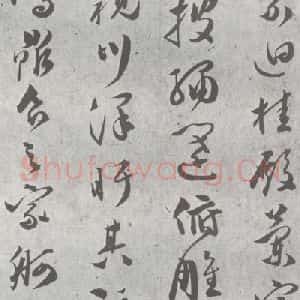 迴桂殿蘭宮
披繡闥俯雕
視川澤盱其
鼎食之家舸
Shufawang.CN